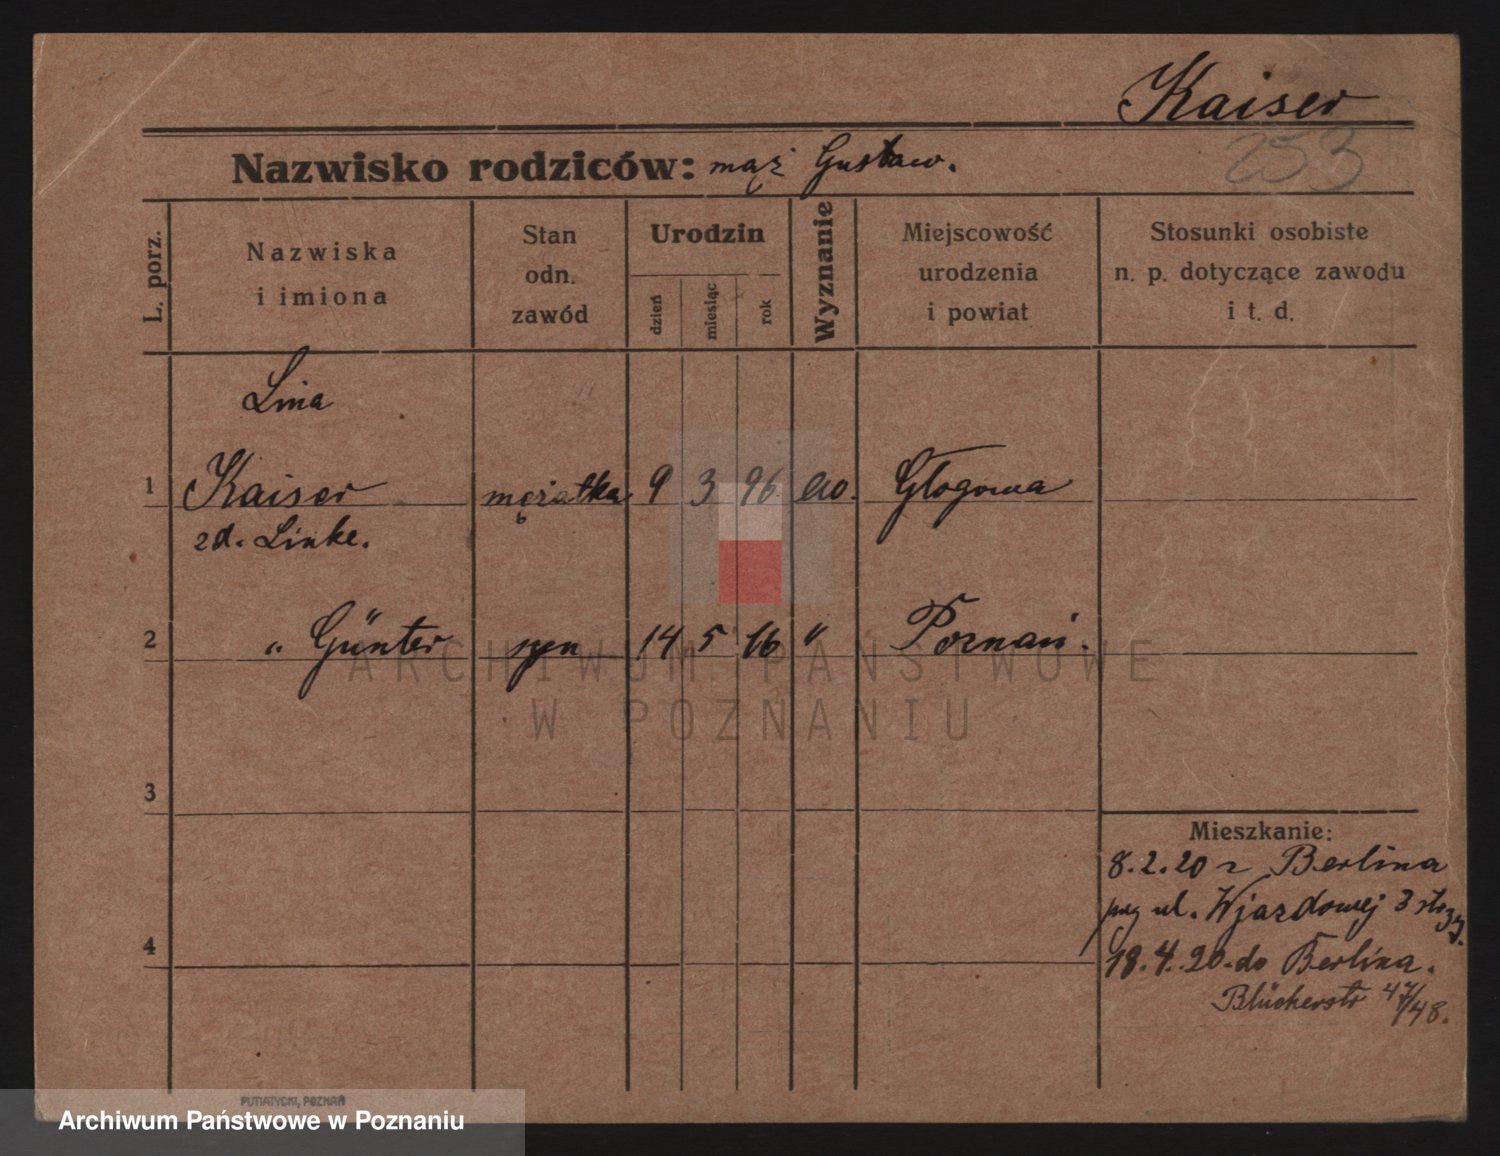 Kaiser
253
Nazwisko rodziców: mąż Gustaw.
L. porz.
Nazwiska
i imiona
Stan
odn.
zawód
Urodzin
dzień
miesiąc
rok
Wyznanie
Miejscowość
urodzenia
i powiat
Stosunki osobiste
n. p. dotyczące zawodu
i t. d.
Lina
1 Kaiser mężatka 9 3 96 ew. Głogowa
zd. Linke.
2 " Günter syn 14 5 16 " Poznań.
3
4
Mieszkanie:
8.2.20 z Berlina
ul. Wjazdowej 3
18.4.20. do Berlina.
Blücherstr 47/48.
ARCHIWUM PAŃSTWOWE
W POZNANIU
PUTIATYCKI, POZNAŃ
Archiwum Państwowe w Poznaniu